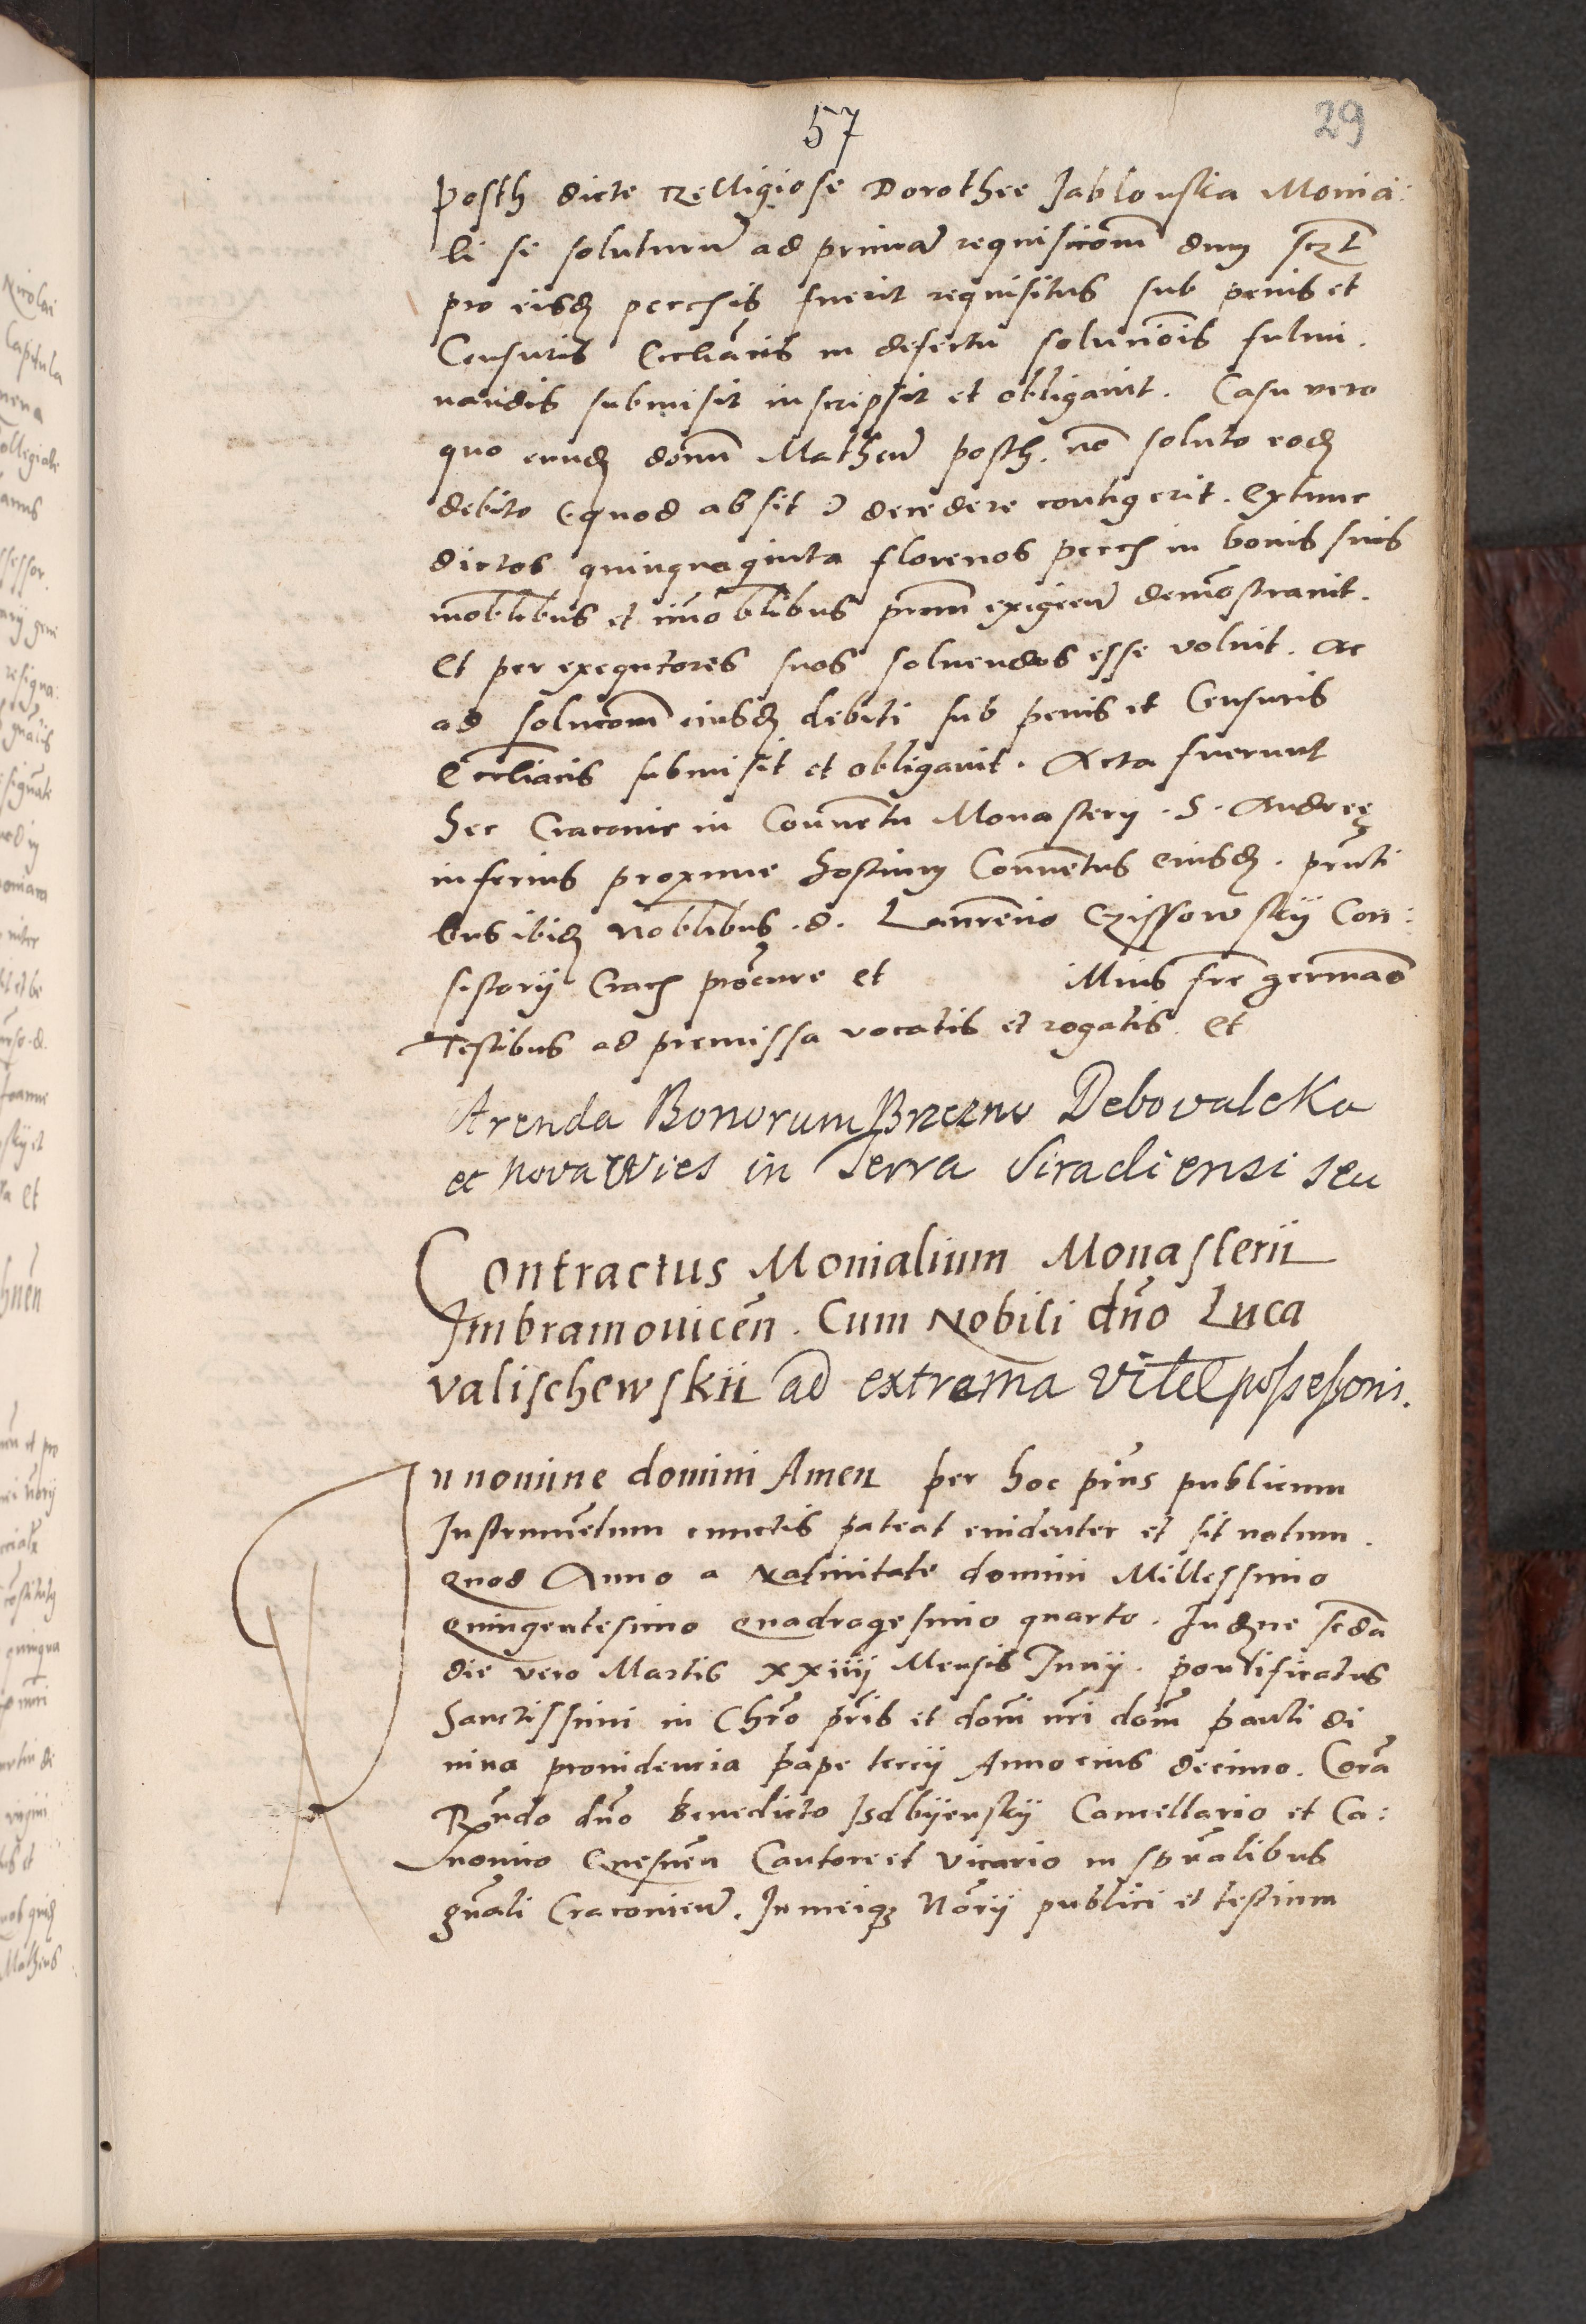 57
29
posth dicte Relligiose Dorothee Jablonska Monia:
li se soluturū ad primā requisicōem dum scꝫt
pro eisdꝫ peccꝫiis fuerit requisitus sub penis et
Censuris Eccliāsticis in defectu soluciōis fulmi.
nandis submisit inscripsit et obligauit. Casu vero
quo eundꝫ dōnū Matheū posth. nō soluto eodꝫ
debito (quod absit) decedere contigerit. Extunc
dictos quinquaginta florenos pecch in bonis suis
moblibus et īmoblibus exigen̄ demōstrauit.
Et per exequtores suos soluendos esse voluit. Ac
ad solucōem eiusdꝫ debiti sub penis et Censuris
Eccliācis submisit et obligauit. Acta fuerunt
hec Cracouie in Conuētu Monastery .S. Andreę
inferius proxime hostium Conuētus eiusdꝫ. prnti
bus ibidꝫ Noblibus .d. Laurēcio Czissowskij Con:
sistorij Cracꝫ procure et illius fre germāo
Testibus ad premissa vocatis et rogatis. Et
Arenda Bonorum Brzezno Debovalcka
et Nova Wies in Terra Siradiensi seu
Contractus Monialium Monasterii
Imbramouicēn. Cum Nobili dn̄o Luca
valischewskii ad extrema vitæ possessoris.
In nomine domini Amen per hoc pn̄s publicum
Instrumētum cunctis pateat euidenter et sit notum.
quod Anno a Natiuitate domini Millessimo
Quingentesimo Quadragesimo quarto. Indꝫne scda
die vero Martis xxiiij Mensis Junij. pontificatus
Sanctissimi in Chro pris et domi nri dom pauli di
uina prouidencia pape tercij Anno eius decimo. Corā
Rṇdo dn̄o Benedicto Isdbijenskij Cancellario et Ca:
nonico Gnesnēn Cantore et vicario in spualibus
gnāli Cracouien̄. In meiqꝫ Nōrij publici et testium